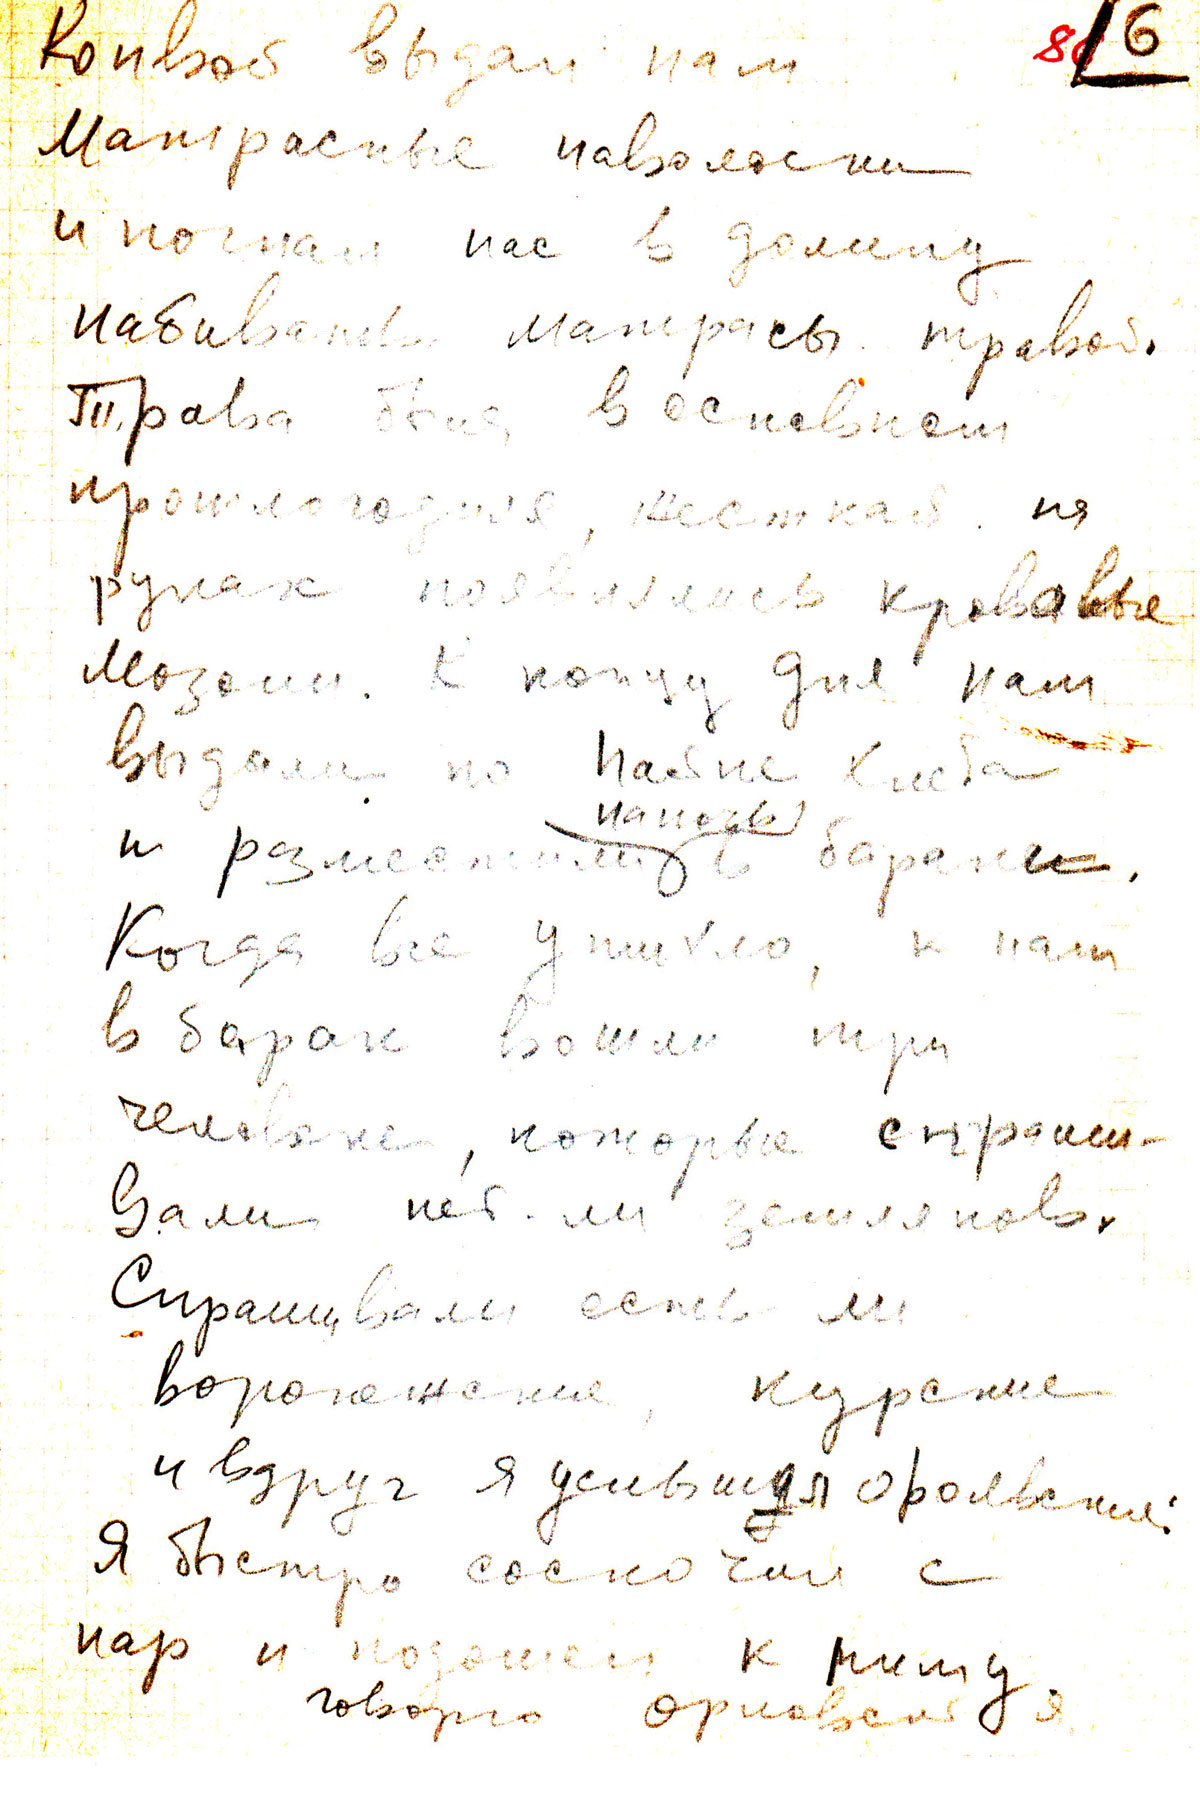 86 6
Конвой выдал нам
Матрасные наволочки
и погнал нас в долину
набивать матрасы травой.
Трава была в основном
прошлогодняя, жесткая. на
руках появлялись кровавые
мозоли. К концу дня нам
выдали по пайке хлеба
на ночь
и разместили в бараки.
Когда все утихло, к нам
в барак вошли три
человека, которые спраши-
вали нет-ли земляков.
Спрашивали есть ли
воронежские, курские
и вдруг я услышал орловские:
Я быстро соскочил с
нар и подошел к нему
говорю орловский я.